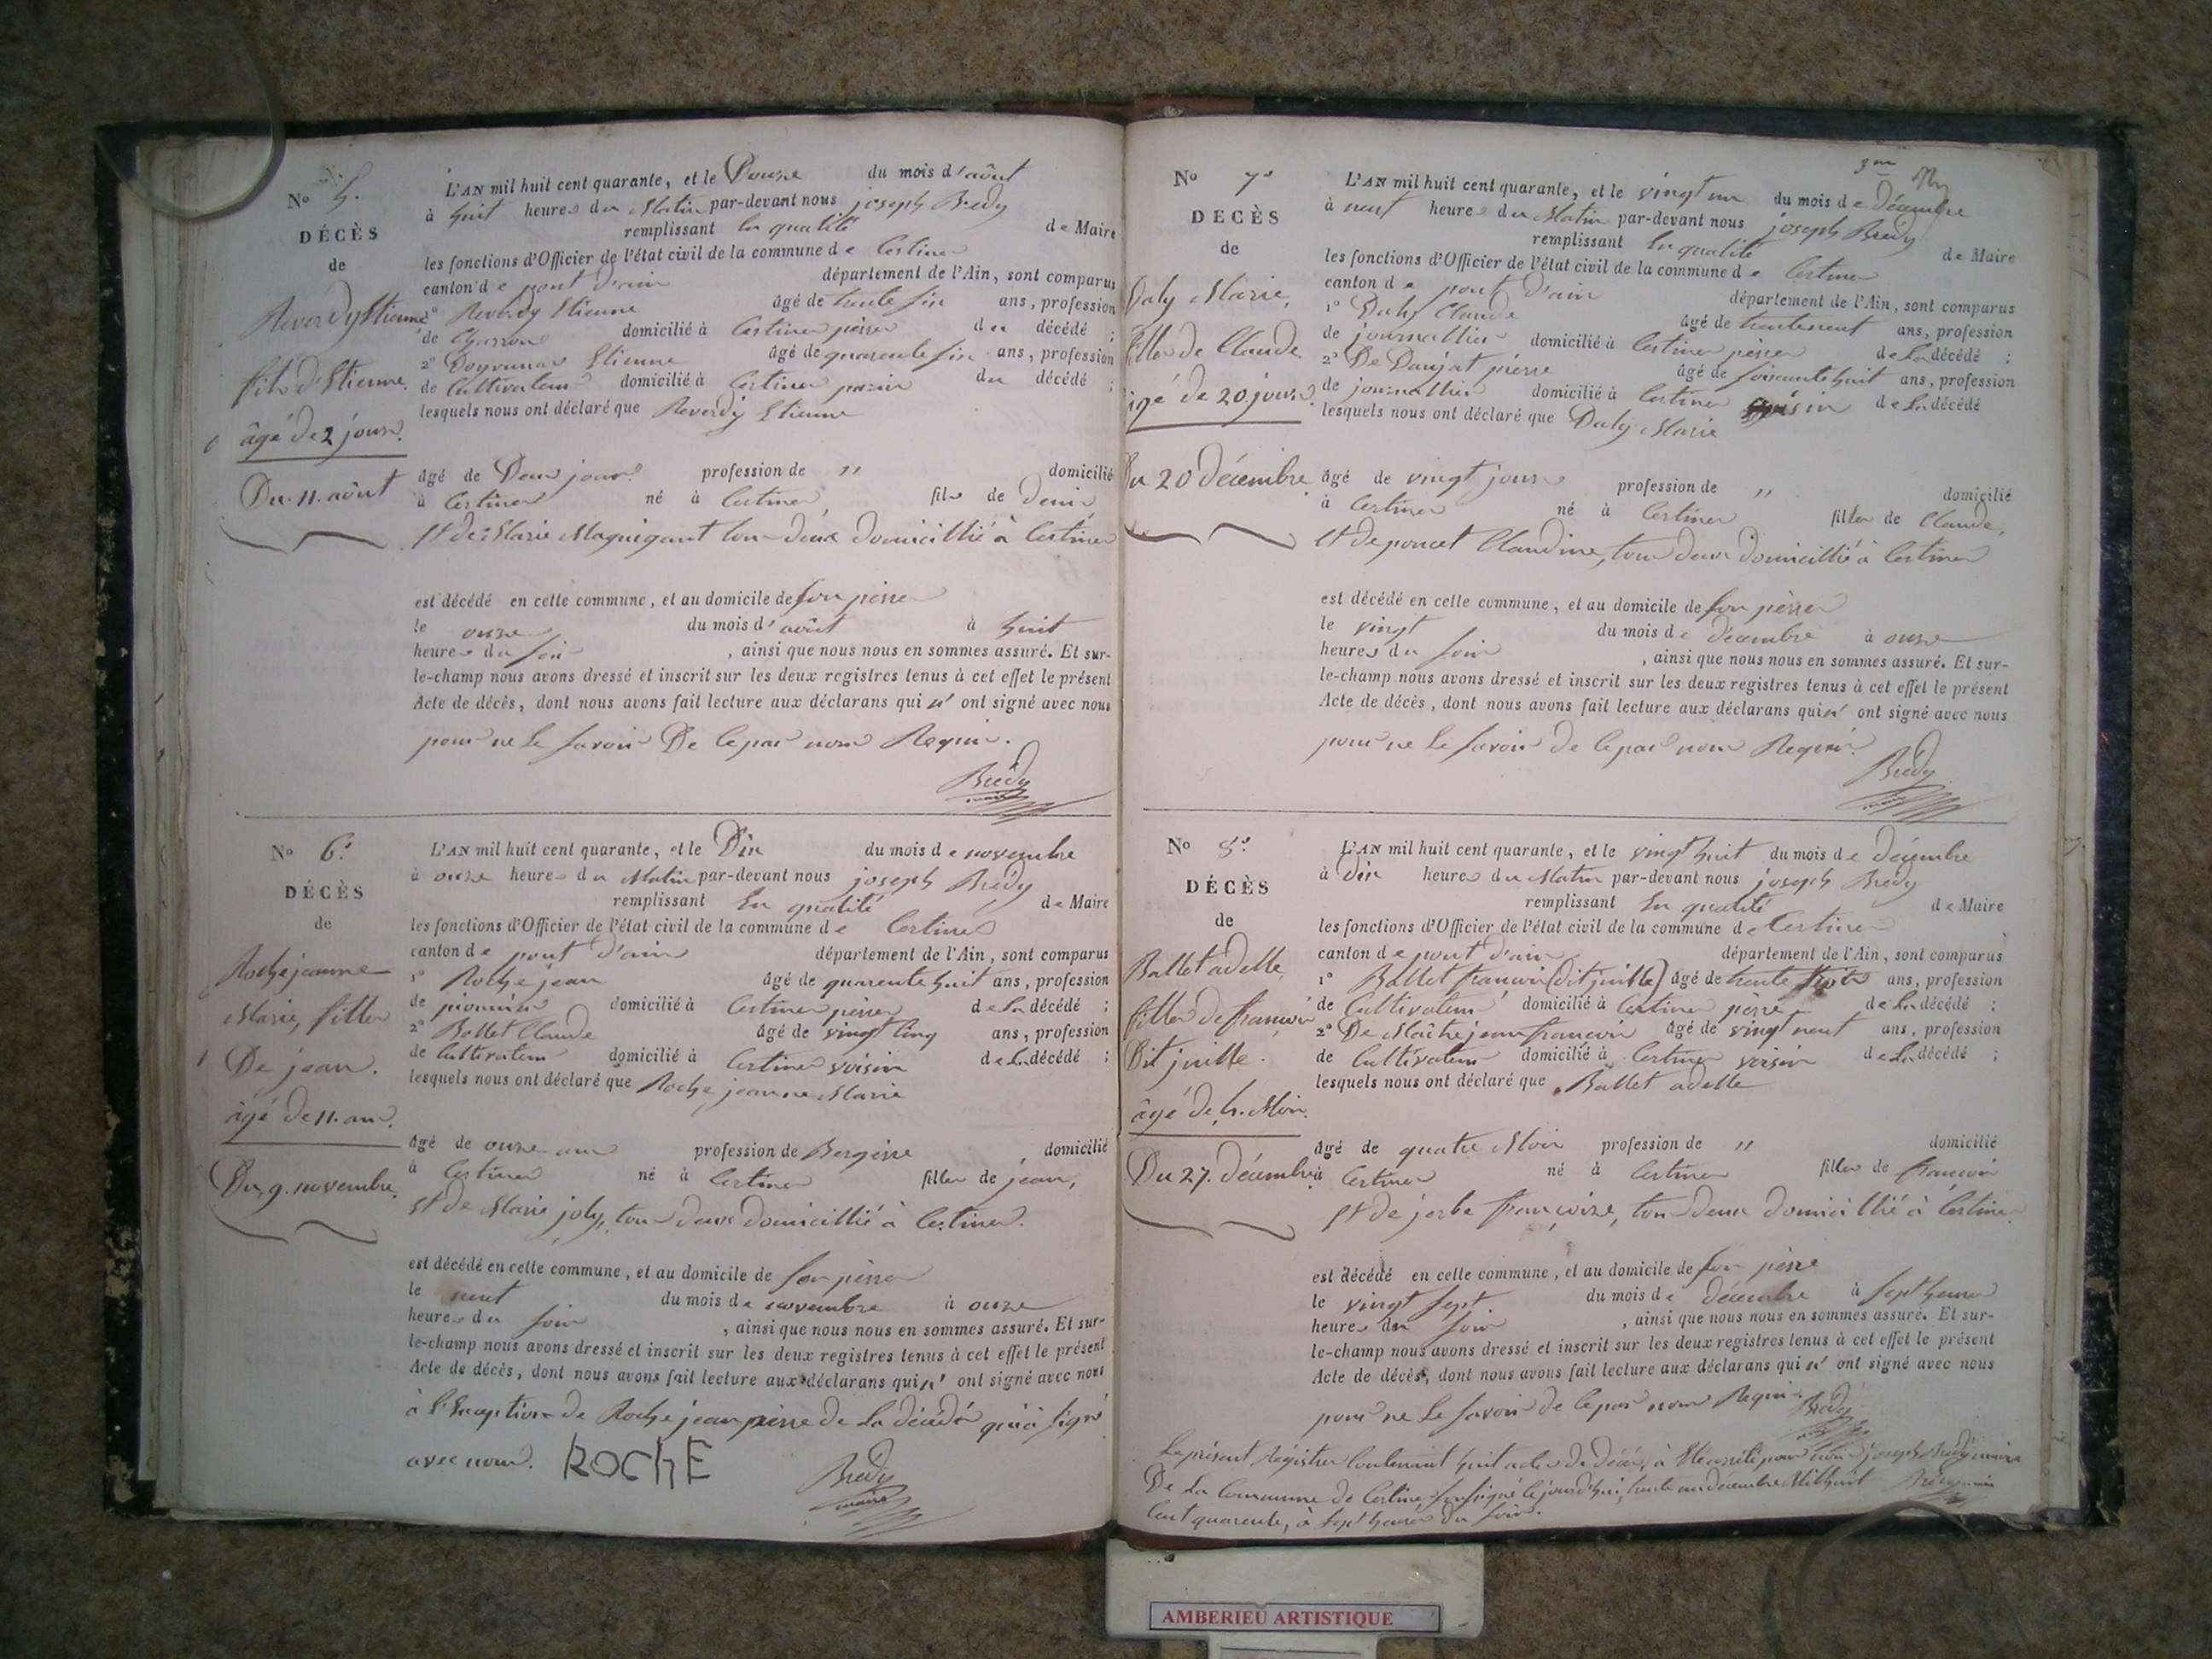 No 5.
DÉCÈS
de
Reverdy Etienne
fils d'Etienne.
âgé de 2 jours.
Du 11. août
L'AN mil huit cent quarante, et le Douze du mois d'août
à huit heures du Matin par-devant nous joseph Bredy
remplissant en qualité de Maire
les fonctions d'Officier de l'état civil de la commune de Certines
canton de pont d'ain département de l'Ain, sont comparus
1° Reverdy Etienne âgé de trente six ans, profession
de Charron domicilié à Certines pèrre du décédé ;
2° Etienne âgé de quarente six ans, profession
de Cultivateur domicilié à Certines du décédé ;
lesquels nous ont déclaré que Reverdy Etienne
âgé de Deux jours profession de " domicilié
à Certines né à Certines fils de
Et de Marie tous deux Domicillié à Certines
est décédé en cette commune, et au domicile de son pèrre
le onze du mois d'août à huit
heures du soir , ainsi que nous nous en sommes assuré. Et sur-
le-champ nous avons dressé et inscrit sur les deux registres tenus à cet effet le présent
Acte de décès, dont nous avons fait lecture aux déclarans qui n' ont signé avec nous
pour ne le savoir De Cepar nous Requis.
Bredy
maire
No 6.
DÉCÈS
de
Roche jeanne
Marie, fille
De jean.
âgé de 11. ans.
Du 9. novembre.
L'AN mil huit cent quarante, et le Dix du mois de novembre
à onze heures du Matin par-devant nous joseph Bredy
remplissant En qualité de Maire
les fonctions d'Officier de l'état civil de la commune de Certines
canton de pont d'ain département de l'Ain, sont comparus
1° Roche jean âgé de quarente huit ans, profession
de domicilié à Certines pèrre de La décédé ;
2° Ballet Claude âgé de vingt Cinq ans, profession
de Cultivateur domicilié à Certines voisin de La décédé ;
lesquels nous ont déclaré que Roche jeanne Marie
âgé de onze ans profession de Bergèrre domicilié
à Certines né à Certines fille de jean,
Et de Marie joly, tous deux domicillié à Certines.
est décédé en cette commune, et au domicile de son pèrre
le neuf du mois de novembre à onze
heures du soir , ainsi que nous nous en sommes assuré. Et sur-
le-champ nous avons dressé et inscrit sur les deux registres tenus à cet effet le présent
Acte de décès, dont nous avons fait lecture aux déclarans qui n' ont signé avec nous
à l'Exception de Roche jean pèrre de La décédé qui à signé
avec nous. ROCHE
Bredy
maire
3me
No 7.
DECÈS
de
Daly Marie,
fille de Claude.
âgé de 20 jours.
Du 20 Décembre.
L'AN mil huit cent quarante, et le vingt un du mois de Décembre
à neuf heures du Matin par-devant nous joseph Bredy
remplissant En qualité de Maire
les fonctions d'Officier de l'état civil de la commune de Certines
canton de pont d'ain département de l'Ain, sont comparus
1° Daly Claude âgé de trenteneuf ans, profession
de journallier domicilié à Certines pèrre de La décédé ;
2° De Daujat pièrre âgé de soixante huit ans, profession
de journallier domicilié à Certines de La décédé
lesquels nous ont déclaré que Daly Marie
âgé de vingt jours profession de " domicilié
à Certines né à Certines fille de Claude,
Et de poncet Claudine, tous deux Domicillié à Certines
est décédé en cette commune, et au domicile de son pèrre
le vingt du mois de décembre à onze
heures du soir , ainsi que nous nous en sommes assuré. Et sur-
le-champ nous avons dressé et inscrit sur les deux registres tenus à cet effet le présent
Acte de décès, dont nous avons fait lecture aux déclarans qui n' ont signé avec nous
pour ne Le savoir de Cepar nous Requis.
Bredy
No 8.
DÉCÈS
de
Ballet adelle,
fille de françois
Dit juille.
âgé de 4. Mois.
Du 27. décembre
L'AN mil huit cent quarante, et le vingt huit du mois de Décembre
à dix heures du Matin par-devant nous joseph Bredy
remplissant En qualité de Maire
les fonctions d'Officier de l'état civil de la commune de Certines
canton de pont d'ain département de l'Ain, sont comparus
1° Ballet françois (dit juille) âgé de trente ans, profession
de Cultivateur domicilié à Certines pèrre de La décédé ;
2° De Maîtrejean françois âgé de vingt neuf ans, profession
de Cultivateur domicilié à Certines voisin de La décédé ;
lesquels nous ont déclaré que Ballet adelle
âgé de quatre Mois profession de " domicilié
à Certines né à Certines fille de françois
Et de françoise, tous Deux Domicillié à Certines
est décédé en cette commune, et au domicile de son pèrre
le vingt sept du mois de Décembre à sept heures
heures du soir , ainsi que nous nous en sommes assuré. Et sur-
le-champ nous avons dressé et inscrit sur les deux registres tenus à cet effet le présent
Acte de décès, dont nous avons fait lecture aux déclarans qui n' ont signé avec nous
pour ne Le savoir de Cepar nous Requis
Bredy
Le présent Régistre Contenant huit actes de Décès, à été arrêté par nous joseph Bredy maire
De La Commune de Certines soussigné Cejourd'hui, trente un décembre Mil huit
Cent quarente, à sept heures du soir.
Bredy maire
AMBERIEU ARTISTIQUE